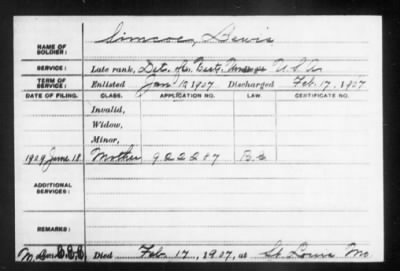 NAME OF SOLDIER: Simcoe, Lewis
SERVICE: Late rank, U.S.A.
TERM OF SERVICE: Enlisted Jan 1907 Discharged Feb. 17, 1907
DATE OF FILING. CLASS. APPLICATION NO. LAW. CERTIFICATE NO.
Invalid,
Widow,
Minor,
1909 June 18. Mother 922287
ADDITIONAL SERVICES:
REMARKS:
Died Feb. 17, 1907, at St. Louis Mo